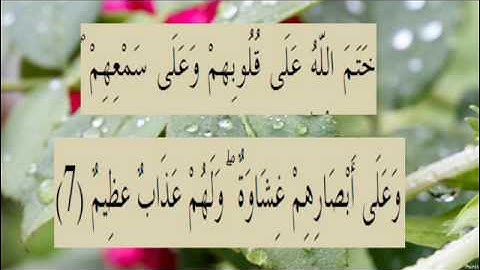 خَتَمَ اللَّهُ عَلَى قُلُوبِهِمْ وَعَلَى سَمْعِهِمْ ۖ
وَعَلَى أَبْصَارِهِمْ غِشَاوَةٌ ۖ وَلَهُمْ عَذَابٌ عَظِيمٌ (7)